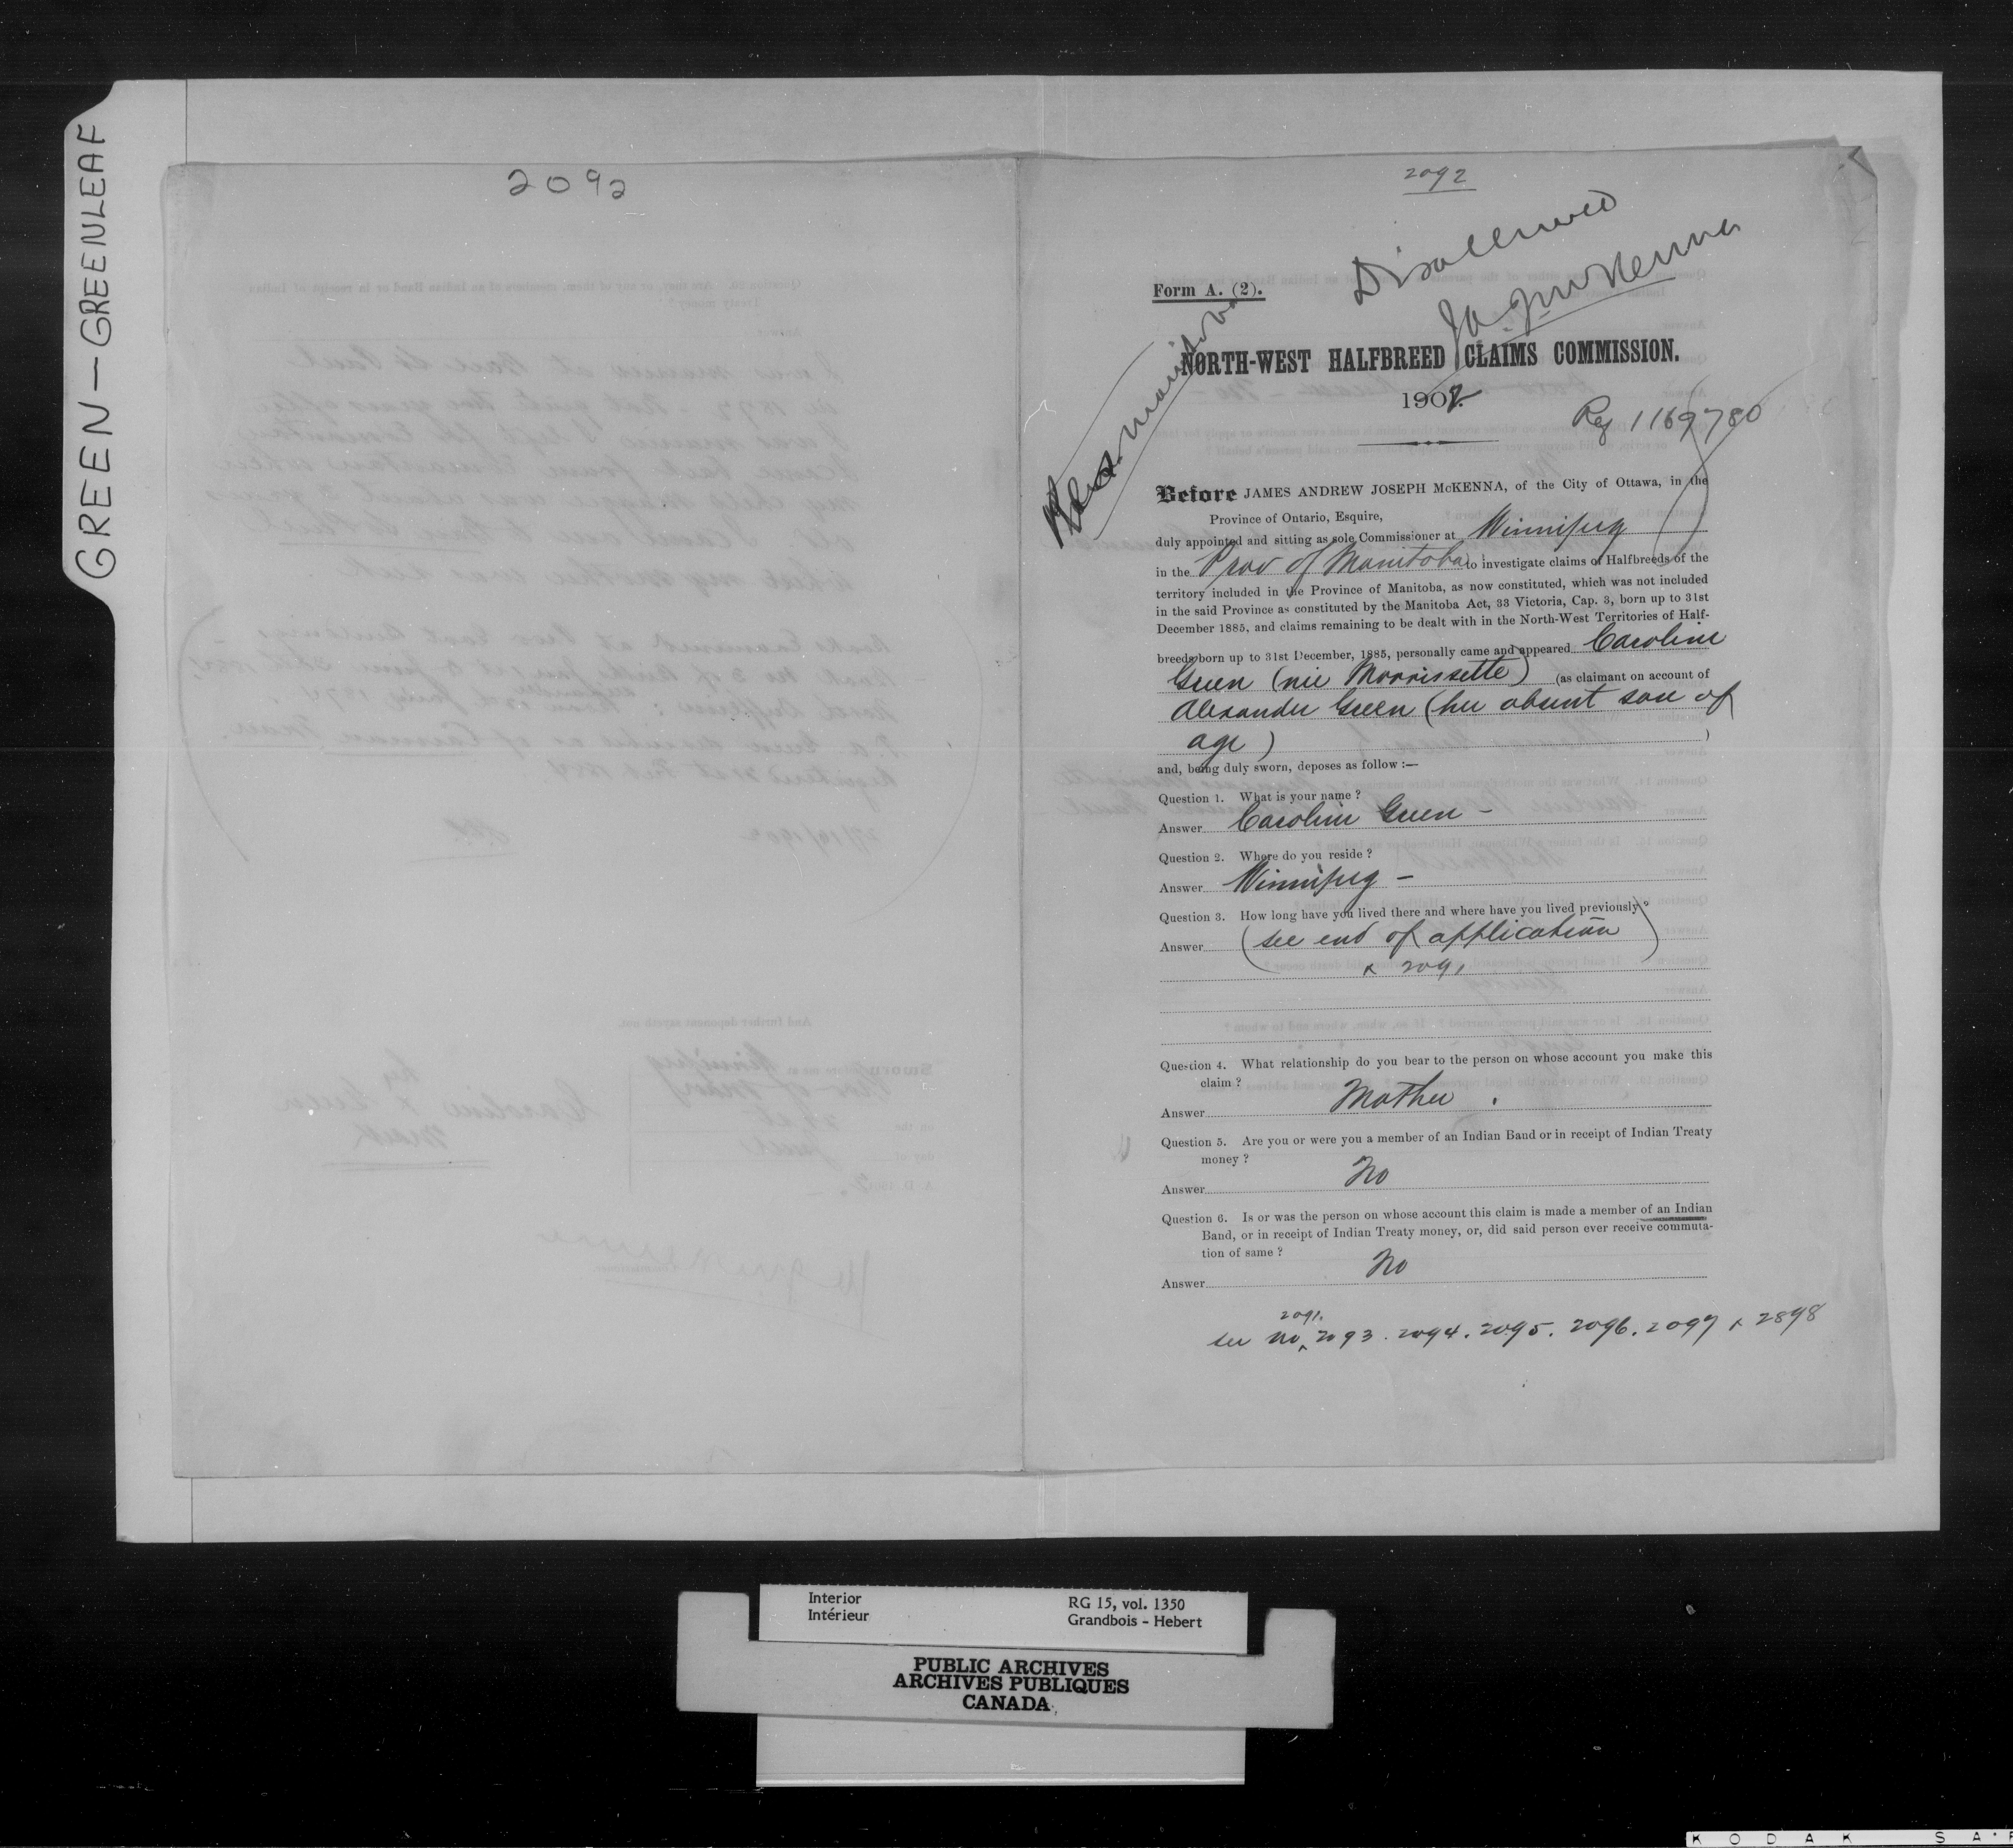 GREEN — GREENLEAF
2092
2092
Disallowed
JAJ McKenna
Form A. (2).
Manitoba
NORTH-WEST HALFBREED CLAIMS COMMISSION.
1902.
Reg 1169780
Before JAMES ANDREW JOSEPH McKENNA, of the City of Ottawa, in the
Province of Ontario, Esquire,
duly appointed and sitting as sole Commissioner at Winnipeg
in the Prov of Manitoba to investigate claims of Halfbreeds of the
territory included in the Province of Manitoba, as now constituted, which was not included
in the said Province as constituted by the Manitoba Act, 33 Victoria, Cap. 3, born up to 31st
December 1885, and claims remaining to be dealt with in the North-West Territories of Half-
breeds born up to 31st December, 1885, personally came and appeared Caroline
Green (nee Morrissette) (as claimant on account of
Alexander Green (her absent son of
age) )
and, being duly sworn, deposes as follow :—
Question 1. What is your name ?
Answer Caroline Green –
Question 2. Where do you reside ?
Answer Winnipeg –
Question 3. How long have you lived there and where have you lived previously ?
Answer (see end of application)
& 2091
Question 4. What relationship do you bear to the person on whose account you make this
claim ?
Answer Mother .
Question 5. Are you or were you a member of an Indian Band or in receipt of Indian Treaty
money ?
Answer No
Question 6. Is or was the person on whose account this claim is made a member of an Indian
Band, or in receipt of Indian Treaty money, or, did said person ever receive commuta-
tion of same ?
Answer No
2091.
see No ^ 2093 . 2094 . 2095 . 2096 . 2097 & 2898
Interior
Intérieur
RG 15, vol. 1350
Grandbois - Hebert
PUBLIC ARCHIVES
ARCHIVES PUBLIQUES
CANADA
KODAK SA